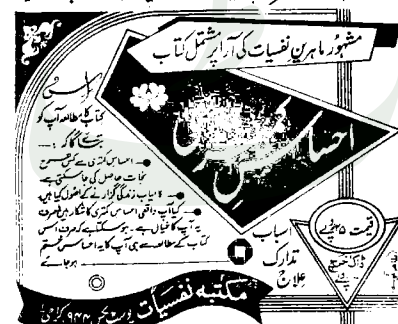 مشہور ماہرین نفسیات کی آرا پر مشتمل کتاب
احساسِ کمتری
اس
کتاب کا مطالعہ آپ کو
بتائے گا کہ :—
احساس کمتری سے کس طرح
نجات حاصل کی جاسکتی ہے
کامیاب زندگی گزارنے کے اصول کیا ہیں
کیا آپ واقعی احساس کمتری کا شکار ہیں یا صرف
یہ آپ کا خیال ہے۔ ہوسکتا ہے کہ صرف اس
کتاب کے مطالعہ سے ہی آپ کا یہ احساس ختم
ہوجائے
اسباب
تدارک
علاج
قیمت ۵ روپے
ڈاک خرچ
مکتبہ نفسیات پوسٹ بکس ۹۴۴ کراچی